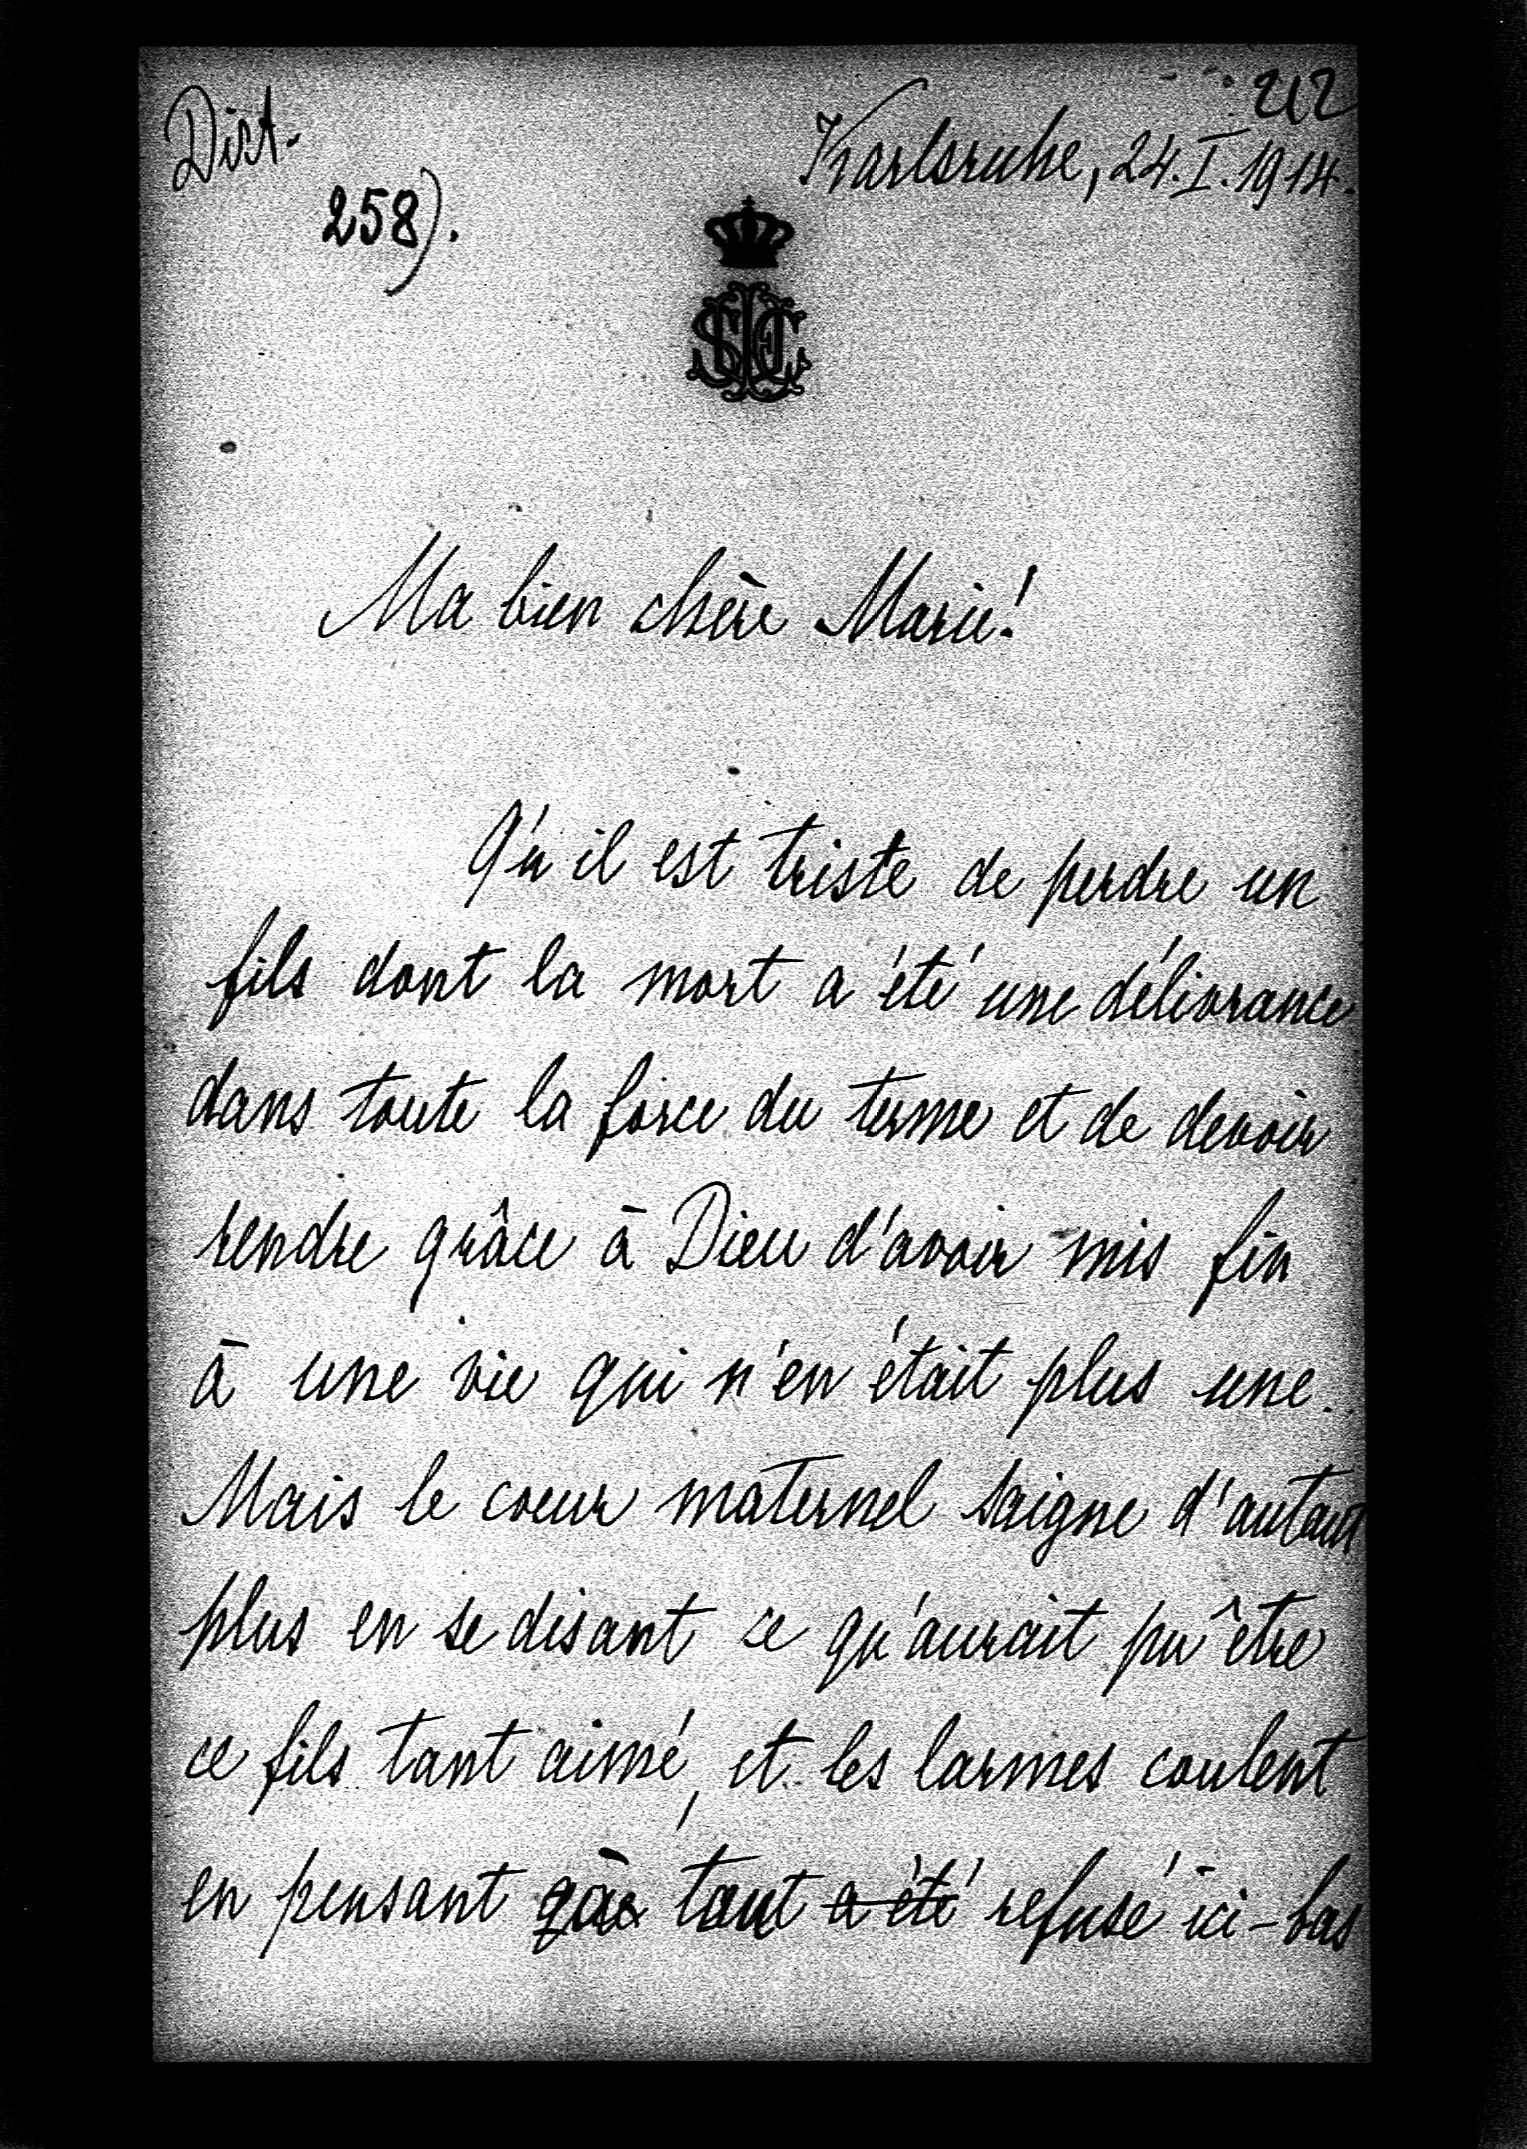 212
Dict.
Karlsruhe, 24.I.1914.
258).
Ma bien chère Marie!
Qu'il est triste de perdre un
fils dont la mort a été une délivrance
dans toute la force du terme et de devoir
rendre grâce à Dieu d'avoir mis fin
à une vie qui n'en était plus une.
Mais le coeur maternel saigne d'autant
plus en se disant ce qu'aurait pu être
ce fils tant aimé, et les larmes coulent
en pensant à tout a été refusé ici-bas